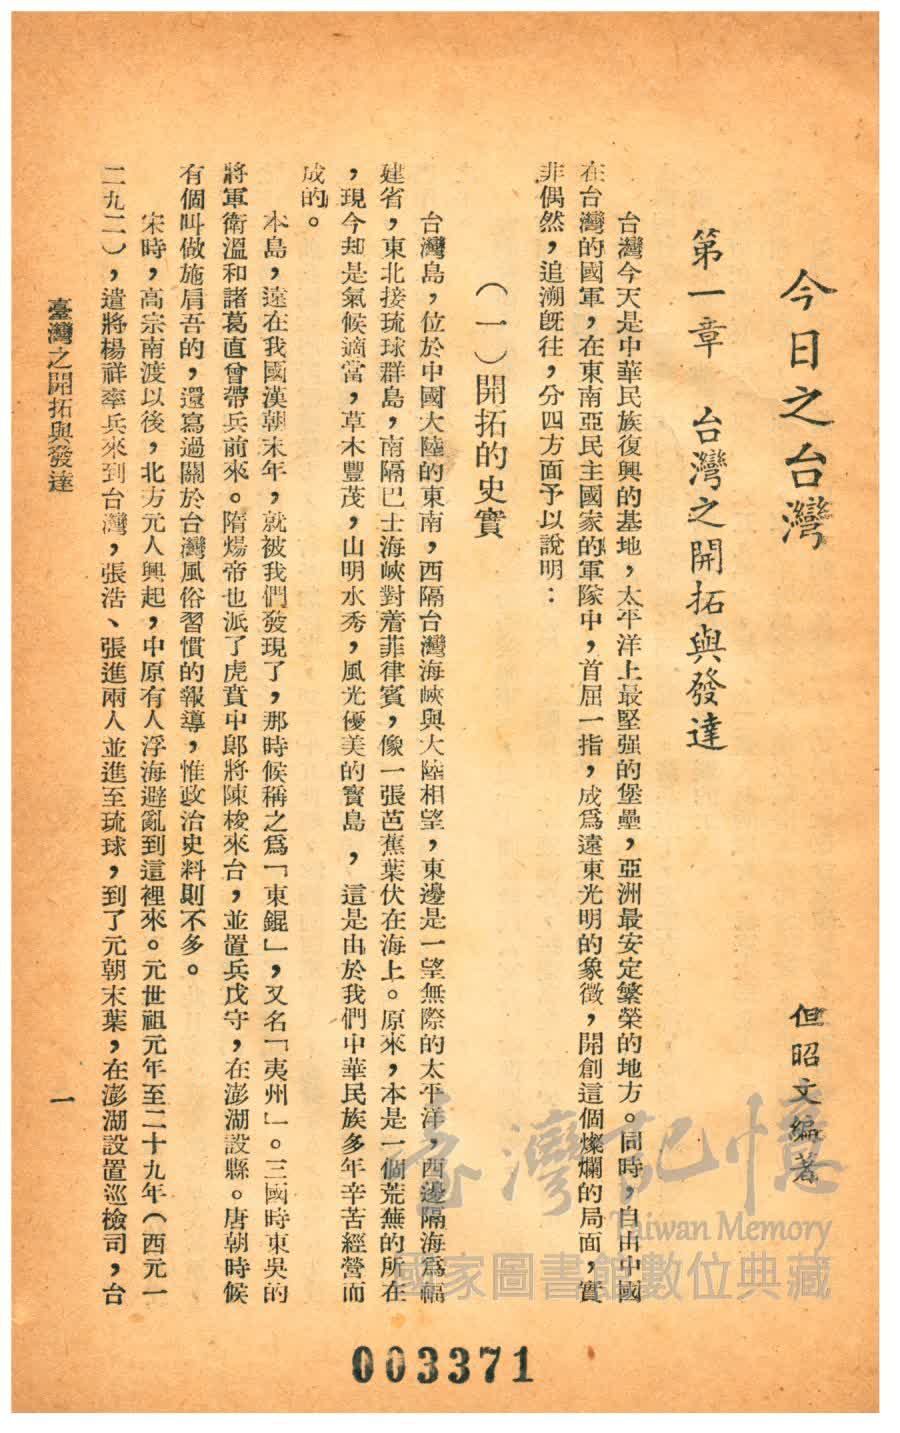 今日之台灣
但昭文編著
第一章　台灣之開拓與發達
台灣今天是中華民族復興的基地，太平洋上最堅强的堡壘，亞洲最安定繁榮的地方。同時，自由中國
在台灣的國軍，在東南亞民主國家的軍隊中，首屈一指，成爲遠東光明的象徵，開創這個燦爛的局面，實
非偶然，追溯旣往，分四方面予以說明：
（一）開拓的史實
台灣島，位於中國大陸的東南，西隔台灣海峽與大陸相望，東邊是一望無際的太平洋，西邊隔海爲福
建省，東北接琉球群島，南隔巴士海峽對着菲律賓，像一張芭蕉葉伏在海上。原來，本是一個荒蕪的所在
，現今却是氣候適當，草木豐茂，山明水秀，風光優美的寶島，這是由於我們中華民族多年辛苦經營而
成的。
本島，遠在我國漢朝末年，就被我們發現了，那時候稱之爲「東鯤」，又名「夷州」。三國時東吳的
將軍衛溫和諸葛直曾帶兵前來。隋煬帝也派了虎賁中郞將陳梭來台，並置兵戍守，在澎湖設縣。唐朝時候
有個叫做施肩吾的，還寫過關於台灣風俗習慣的報導，惟政治史料則不多。
宋時，高宗南渡以後，北方元人興起，中原有人浮海避亂到這裡來。元世祖元年至二十九年（西元一
二九二），遣將楊祥率兵來到台灣，張浩、張進兩人並進至琉球，到了元朝末葉，在澎湖設置巡檢司，台
臺灣之開拓與發達
一
臺灣記憶
Taiwan Memory
國家圖書館數位典藏
003371